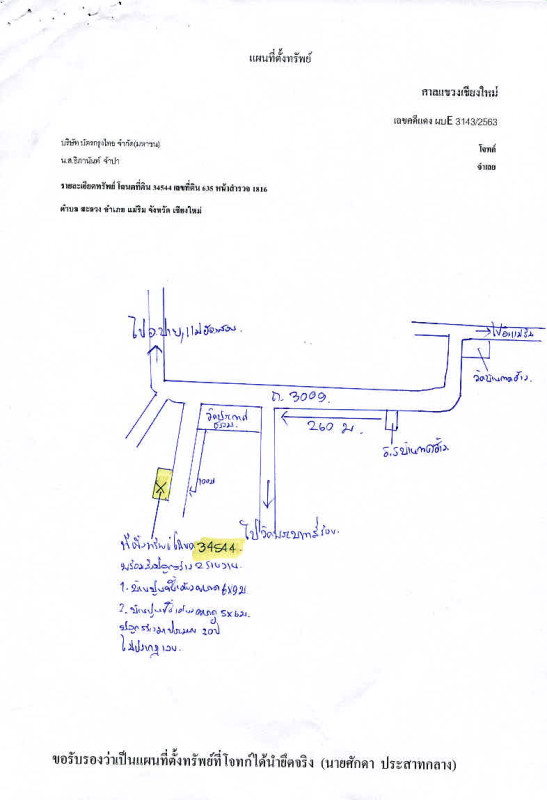 แผนที่ตั้งทรัพย์
ศาลแขวงเชียงใหม่
เลขคดีแดง ผบE 3143/2563
บริษัท บัตรกรุงไทย จำกัด(มหาชน)
โจทก์
น.ส.ธิภานันท์ จำปา
จำเลย
รายละเอียดทรัพย์ โฉนดที่ดิน 34544 เลขที่ดิน 635 หน้าสำรวจ 1816
ตำบล สะลวง อำเภอ แม่ริม จังหวัด เชียงใหม่
ไป อ.ปาย, แม่ฮ่องสอน.
ไปอ.แม่ริม
ถ. 3009.
260 ม.
100ม
ไปวัดพระบาทสี่รอย.
ที่ตั้งทรัพย์โฉนด 34544.
พร้อมสิ่งปลูกสร้าง 2 รายการ
1. บ้านปูนชั้นเดียวขนาด 6x9ม.
2. บ้านปูนชั้นเดียวขนาด 5x6ม.
ปลูกสร้างมาประมาณ 20ปี
ไม่ปรากฏเลข.
ขอรับรองว่าเป็นแผนที่ตั้งทรัพย์ที่โจทก์ได้นำยึดจริง (นายศักดา ประสาทกลาง)